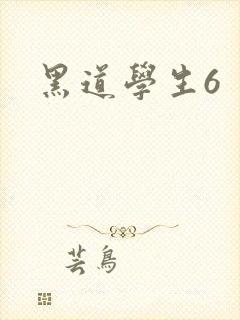 黑道學生6
芸鳥